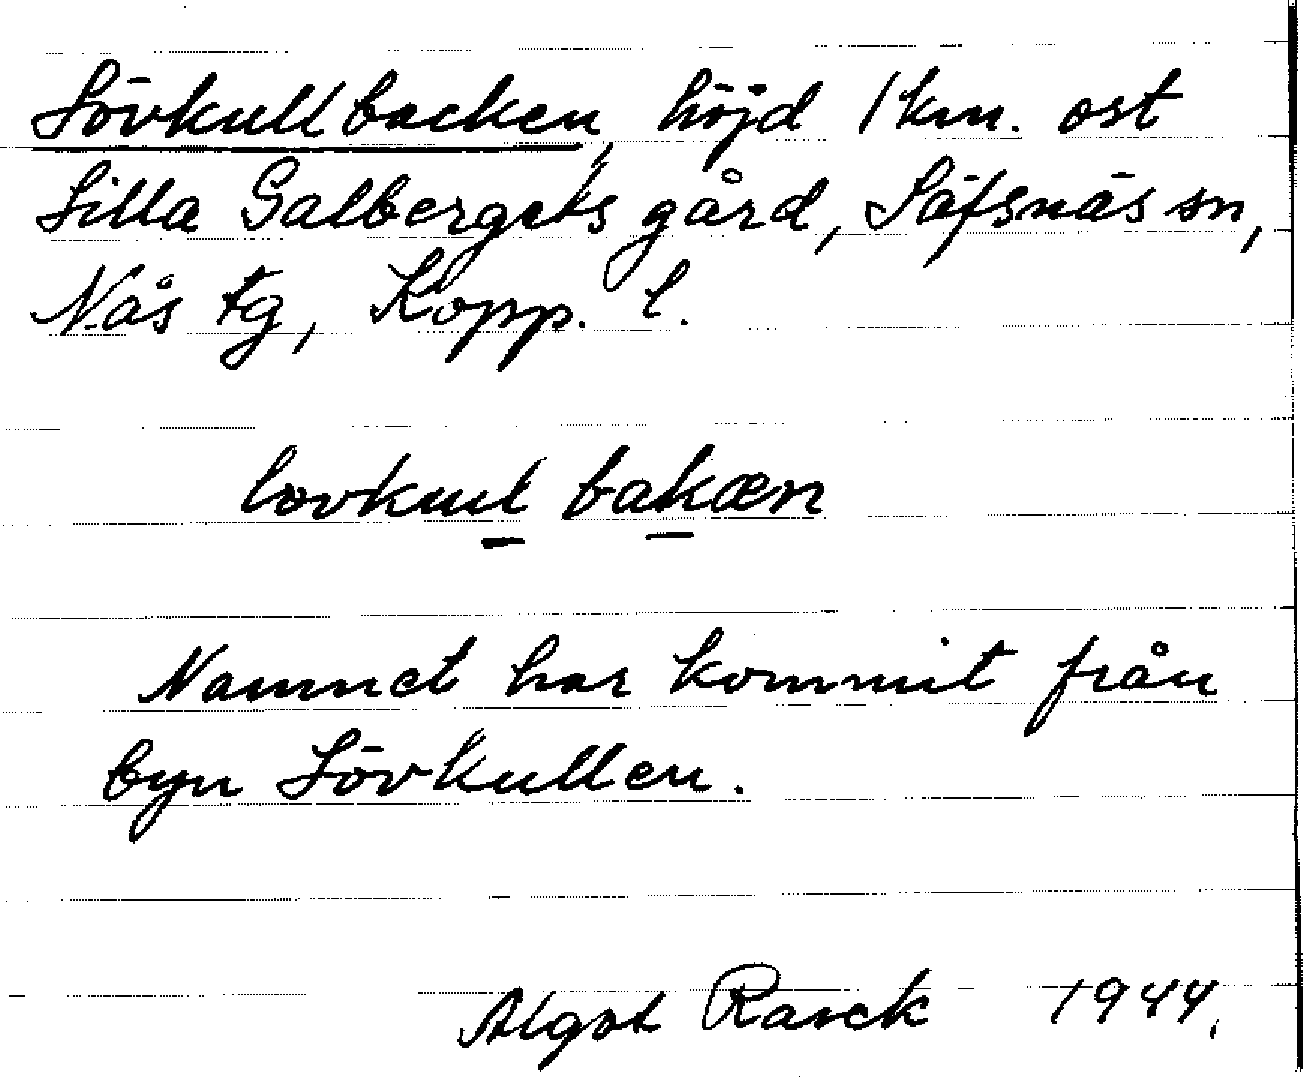 Lövkullbacken, höjd 1 km. ost
Lilla Galbergets gård, Säfsnäs sn,
Nås tg, Kopp. l.
lovkul bakæn
Namnet har kommit från
byn Lövkullen.
Algot Rasck 1944.